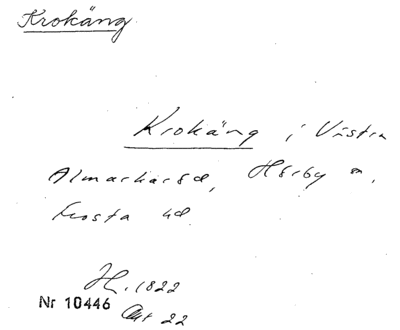 Krokäng
Krokäng i Västra
Almarkaröd, Hörby sn,
Frosta hd
H. 1822
Nr 10446
Akt 22